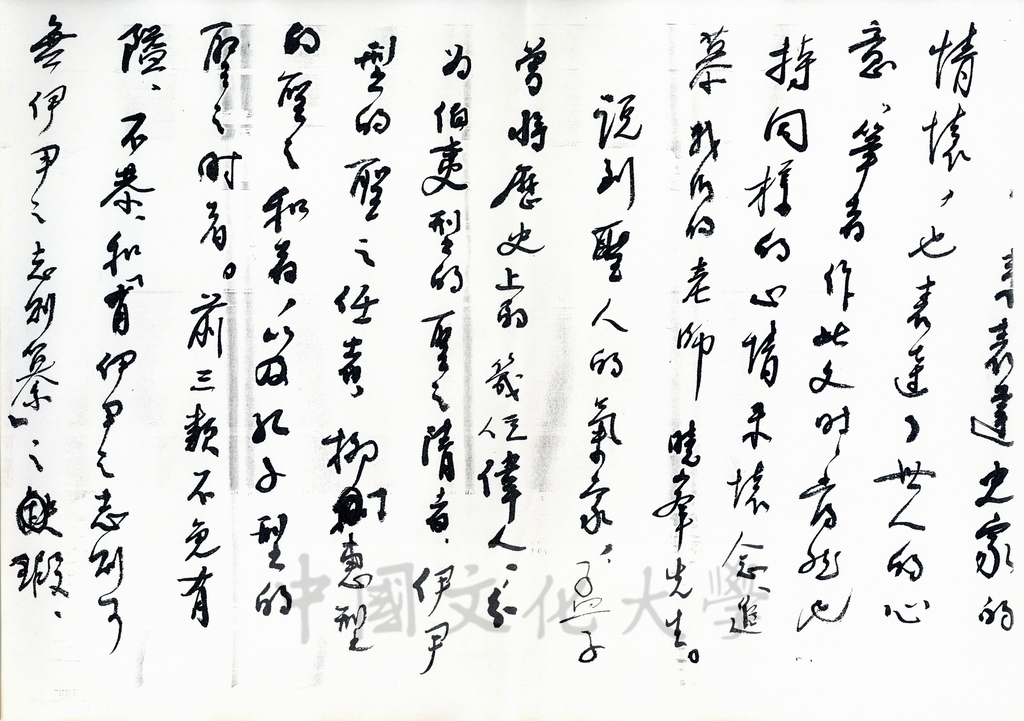 表達史家的
情懷，也表達了世人的心
意，筆者作此文時，當然也
持同樣的心情來懷念追
慕我們的老師曉峯先生。
說到聖人的氣象，孟子
曾將歷史上的幾位偉人，分
為伯夷型的聖之清者，伊尹
型的聖之任者，柳下惠型
的聖之和者，以及孔子型的
聖之時者。前三類不免有
隘、不恭、和「有伊尹之志則可
無伊尹之志則篡」之缺瑕、
中國文化大學